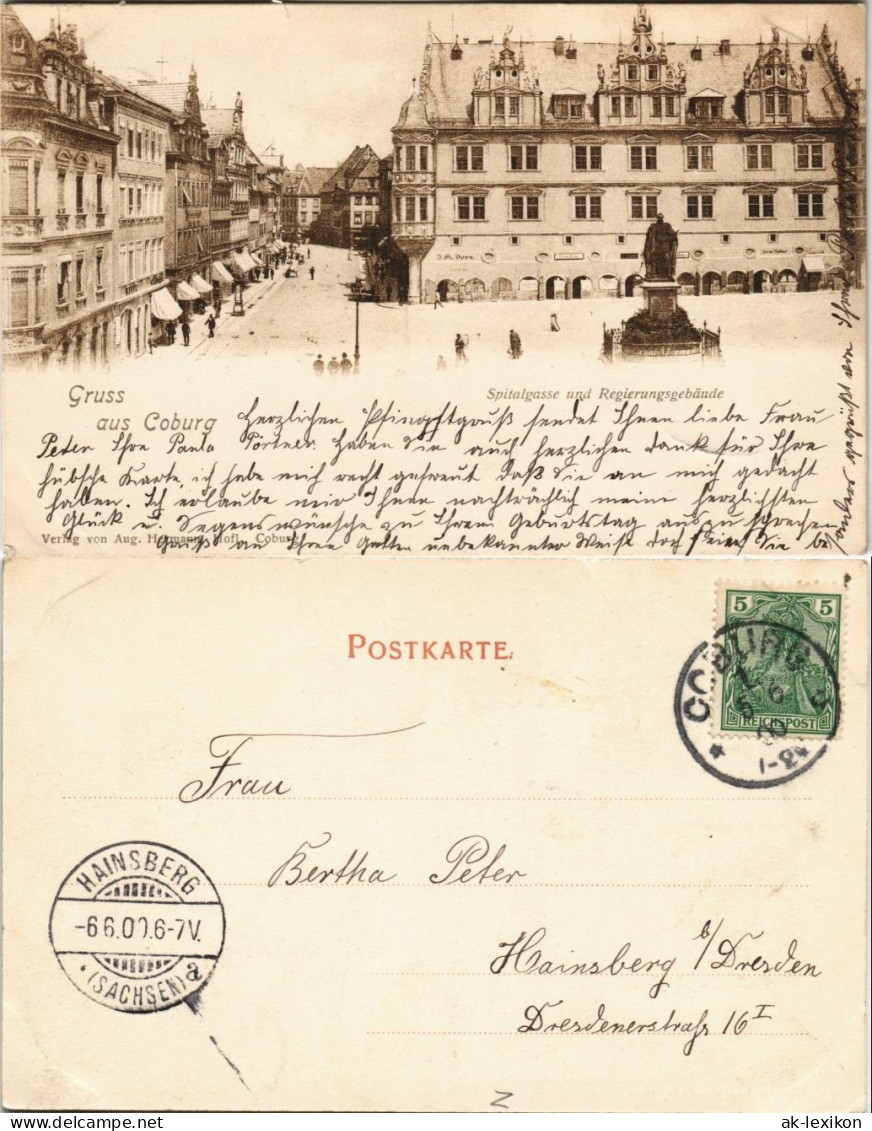 J. M. Dorn
Gruss
aus Coburg
Spitalgasse und Regierungsgebäude
Herzlichen Pfingstgruß sendet Ihnen liebe Frau
Peter Ihre Paula Pörtner. Haben Sie auch herzlichen Dank für Ihre
hübsche Karte, ich habe mich recht gefreut daß Sie an mich gedacht
haben. Ich erlaube mir Ihnen nachträglich meine herzlichsten
Glück u. Segenswünsche zu Ihrem Geburtstag auszusprechen
Verlag von Aug. Hofl. Coburg
Gruß an Ihren Gatten unbekannter Weise doch seien Sie be
sonders gegrüßt von Ihrer Paula
POSTKARTE.
5 5
REICHSPOST
COBURG
5 6
00
1-2N
Frau
Bertha Peter
HAINSBERG
-6 6.00.6-7V.
(SACHSEN) a
Hainsberg b/Dresden
Dresdenerstraße 16 I
Z
ak-lexikon